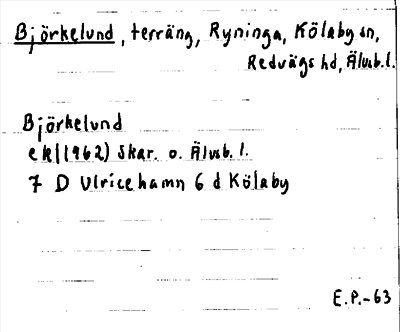 Björkelund, terräng, Ryninga, Kölaby sn,
Redvägs hd, Älvsb.l.
Björkelund
ek/(1962) Skar. o. Älvsb.l.
7 D Ulricehamn 6 d Kölaby
E.P.-63